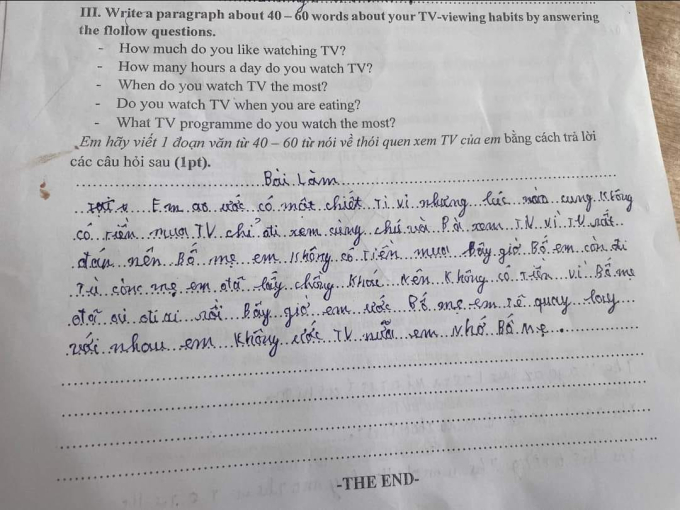 III. Write a paragraph about 40 – 60 words about your TV-viewing habits by answering
the flollow questions.
- How much do you like watching TV?
- How many hours a day do you watch TV?
- When do you watch TV the most?
- Do you watch TV when you are eating?
- What TV programme do you watch the most?
Em hãy viết 1 đoạn văn từ 40 – 60 từ nói về thói quen xem TV của em bằng cách trả lời
các câu hỏi sau (1pt).
Bài Làm
Em ao ước có một chiết Ti vi nhưng lúc nào cung Không
có tiền mua TV chỉ đi xem cùng chú và Bà xem TV vì TV rất
đắn nên Bố mẹ em Không có Tiền mua bây giờ Bố em còn đi
Tù còn mẹ em đã lấy chồng Khác nên Không có tiền vì Bố mẹ
đã đi rồi Bây giờ em ước Bố mẹ em quay lay
với nhau em Không ước TV nữa em Nhớ Bố Mẹ.
-THE END-